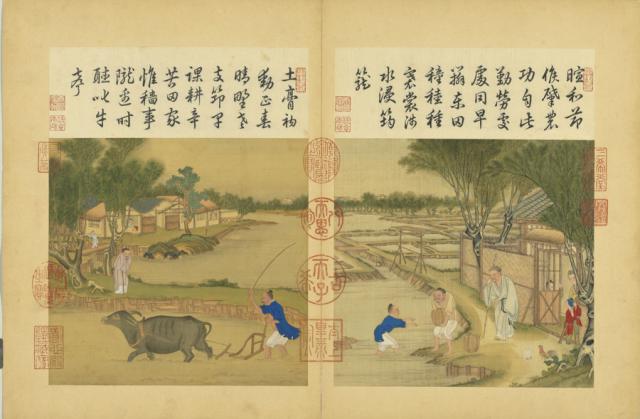 暄和節
候肇農
功自此
勤勞處
處同早
辨東田
穜稑種
褰裳涉
水浸筠
籠
土膏初
動正春
晴野老
支筇早
課耕辛
苦田家
惟穡事
隴邊時
聽叱牛
聲